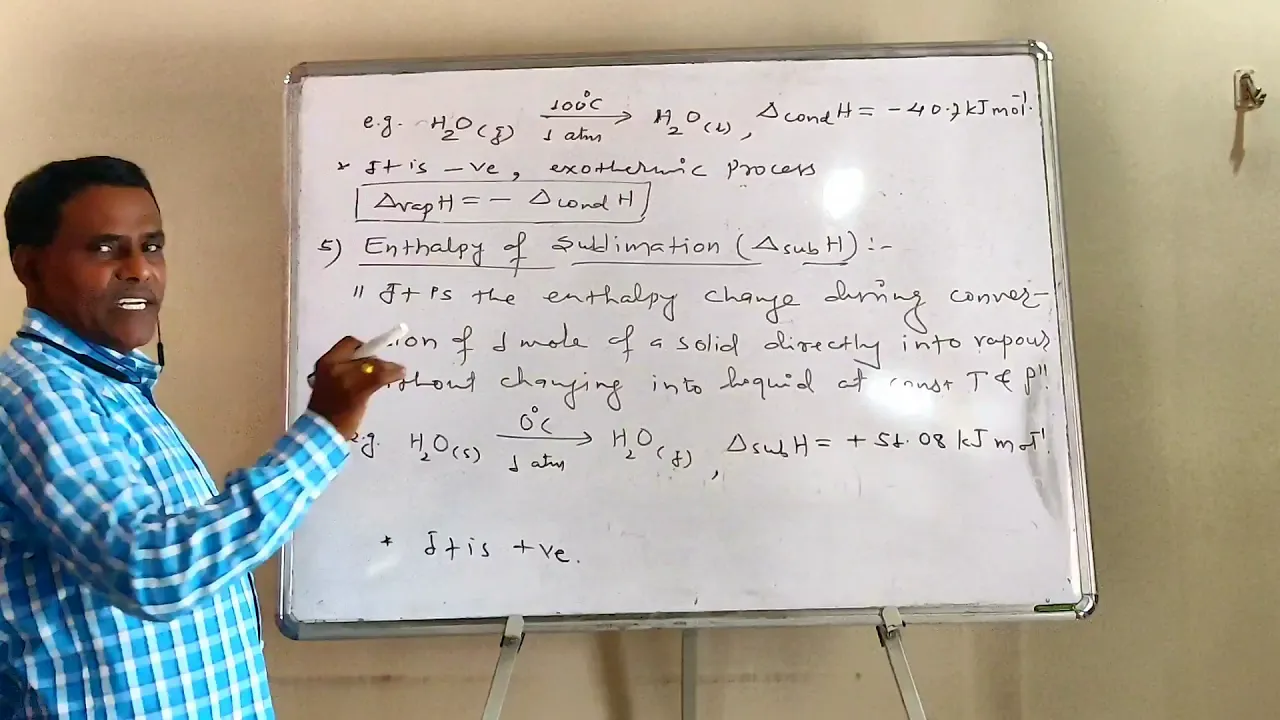 e.g. H₂O(g) 100°C → 1 atm H₂O(l), ΔcondH = - 40.7 kJ mol⁻¹.
* It is -ve, exothermic process
ΔvapH = - ΔcondH
5) Enthalpy of Sublimation (ΔsubH) :-
" It is the enthalpy change during conver-
sion of 1 mole of a solid directly into vapour
without changing into liquid at const T & P".
e.g. H₂O(s) 0°C → 1 atm H₂O(g), ΔsubH = + 51.08 kJ mol⁻¹.
* It is +ve.